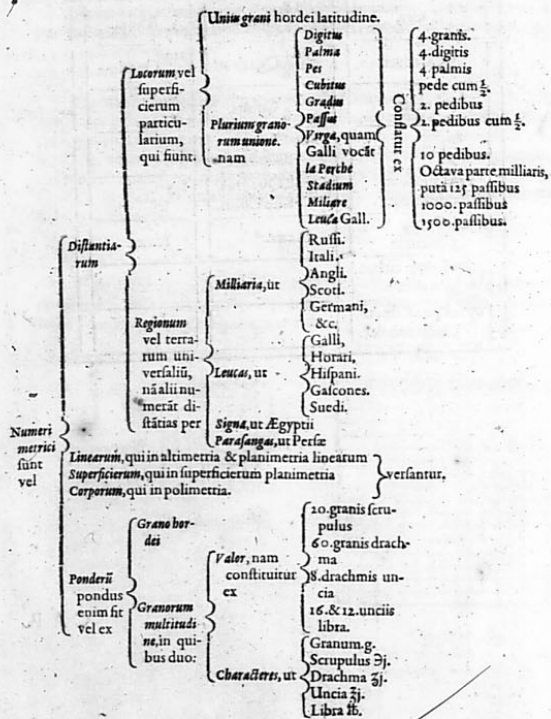 Unius grani hordei latitudine.
Locorum vel
superfi-
cierum
particu-
larium,
qui fiunt.
Plurium grano-
rum unione.
nam
Digitus
Palma
Pes
Cubitus
Gradus
Passus
Virga, quam
Galli vocāt
la Perche
Stadium
Miliare
Leuca Gall.
Constatur ex
4. granis.
4. digitis
4 palmis
pede cum ½.
2. pedibus
2. pedibus cum ½.
10 pedibus.
Octava parte milliaris,
puta 125 passibus
1000. passibus.
1500. passibus.
Distantia-
rum
Regionum
vel terra-
rum uni-
versaliū,
nā alii nu-
merāt di-
stātias per
Milliaria, ut
Russi.
Itali.
Angli.
Scoti.
Germani,
&c.
Leucas, ut
Galli,
Horari,
Hispani.
Gascones.
Suedi.
Signa, ut Ægyptii
Parasangas, ut Persæ
Numeri
metrici
sunt
vel
Linearum, qui in altimetria & planimetria linearum
Superficierum, qui in superficierum planimetria
Corporum, qui in polimetria.
versantur.
Ponderū
pondus
enim fit
vel ex
Grano hor-
dei
Granorum
multitudi
ne, in qui-
bus duo:
Valor, nam
constituitur
ex
20. granis scru-
pulus
60. granis drach-
ma
8. drachmis un-
cia
16. & 12. unciis
libra.
Characteres, ut
Granum. g.
Scrupulus ℈j.
Drachma ʒj.
Uncia ℥j.
Libra ℔.